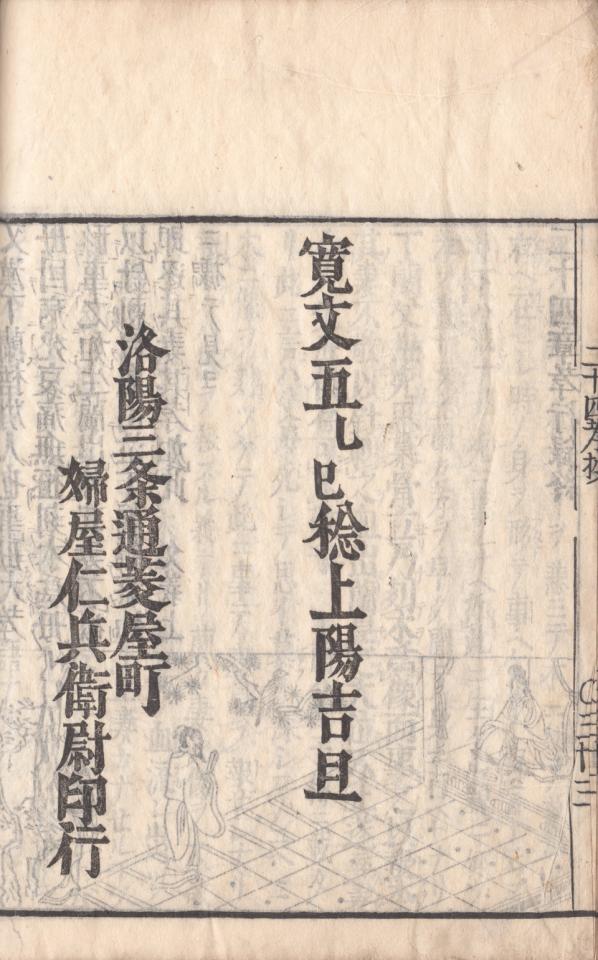 二十四孝抄
寛文五乙巳稔上陽吉旦
洛陽三条通菱屋町
婦屋仁兵衛尉印行